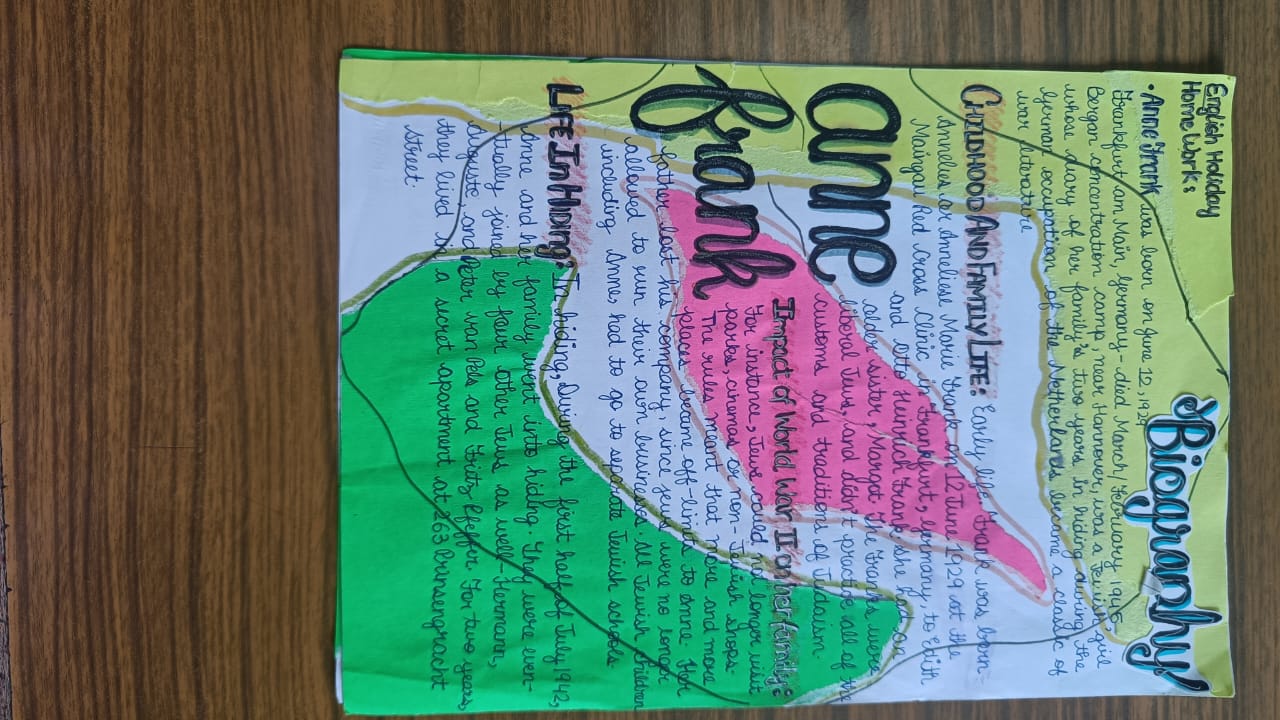 English Holiday
Home Work:
Biography
• Anne Frank was born on June 12, 1929
Frankfurt am Main, Germany - died March/February 1945
Bergen concentration camp, near Hannover, was a Jewish girl
whose diary of her family's two years in hiding during the
German occupation of the Netherlands became a classic of
war literature
CHILDHOOD AND FAMILY LIFE: Early life Frank was born-
Annelies or Anneliese Marie Frank on 12 June 1929 at the
Maingau Red Cross Clinic in Frankfurt, Germany, to Edith
and Otto Heinrich Frank, she had one
older sister, Margot The Franks were
liberal Jews, and didn't practice all of the
customs and traditions of Judaism.
anne
frank
Impact of World War II on her family:
For instance, Jews could no longer visit
parks, cinemas or non-Jewish shops.
The rules meant that more and more
places became off-limits to Anne. Her
father lost his company, since Jews were no longer
allowed to run their own businesses. All Jewish children
including Anne, had to go to separate Jewish schools
LIFE IN HIDING: In hiding, During the first half of July 1942,
Anne and her family went into hiding. They were even-
-tually joined by four other Jews as well- Hermann,
Auguste and Peter van Pels and Fritz Pfeffer For two years,
they lived in a secret apartment at 263 Prinsengracht
street